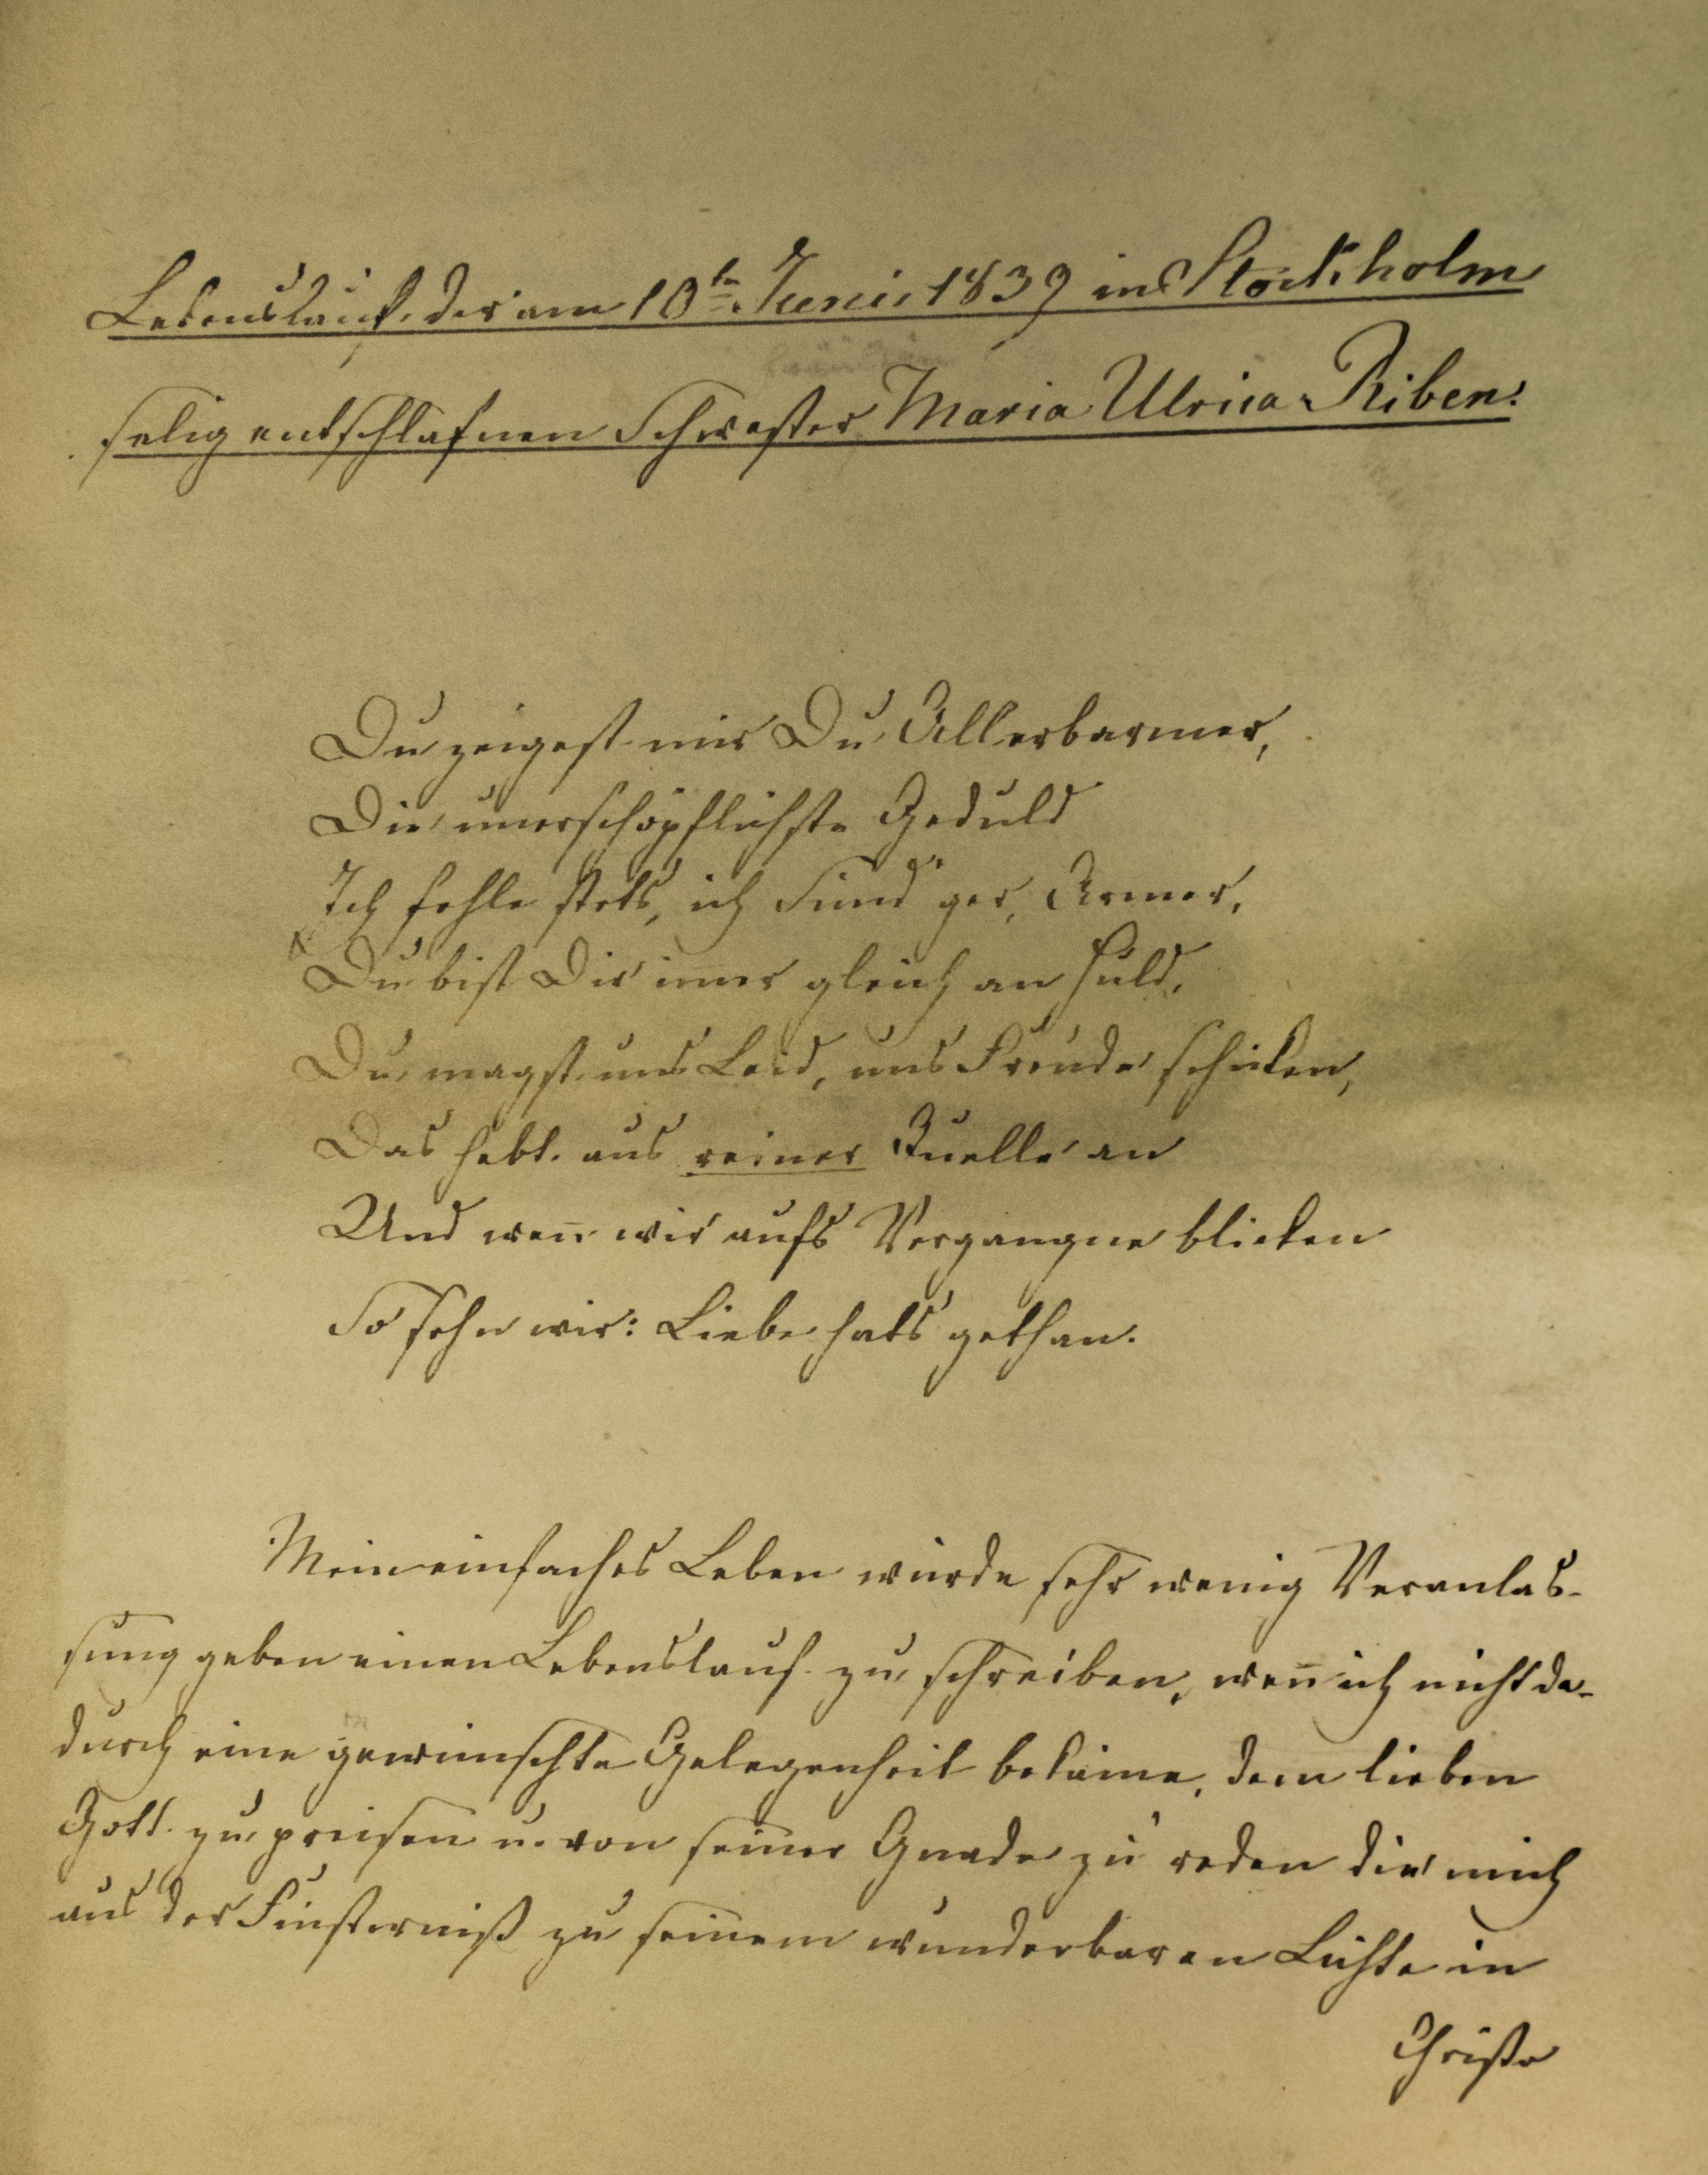 Lebenslauf der am 10ten Junii 1839 in Stockholm
selig entschlafnen Schwester Maria Ulrica Riben.
Du zeigest mir Du Allerbarmer,
Die unerschöpflichste Geduld
Ich fehle stets, ich Sünd'ger, Armer,
Du bist Dir im̄er gleich an Huld.
Du magst uns Leid, uns Freude schicken,
Das hebt aus reiner Quelle an
Und wen̄ wir aufs Vergangne blicken
So sehn wir: Liebe hats gethan.
Mein einfaches Leben würde sehr wenig Veranlas-
sung geben einen Lebenslauf zu schreiben, wen̄ ich nicht da-
durch eine gewünschte Gelegenheit bekäme, dem lieben
Gott zu preisen u. von seiner Gnade zu reden die mich
aus der Finsterniß zu seinem wunderbaren Lichte in
Christo